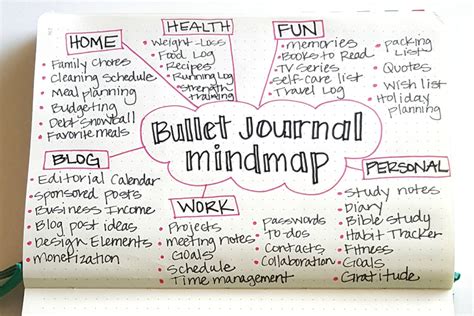 HOME
• Family Chores
• Cleaning Schedule
• Meal planning
• Budgeting
• Debt Snowball
• Favorite meals
HEALTH
• Weight-Loss
• Food Log
• Recipes
• Running Log
• Strength training
FUN
• memories
• Books to Read
• TV Series
• Self-care list
• Travel Log
• packing List
• Quotes
• Wish list
• Holiday planning
Bullet Journal
mindmap
BLOG
• Editorial Calendar
• Sponsored posts
• Business Income
• Blog post ideas
• Design Elements
• Monetization
WORK
• Projects
• meeting notes
• Goals
• Schedule
• Time management
• Passwords
• To dos
• Contacts
• Collaboration
PERSONAL
• Study notes
• Diary
• Bible study
• Habit Tracker
• Fitness
• Goals
• Gratitude